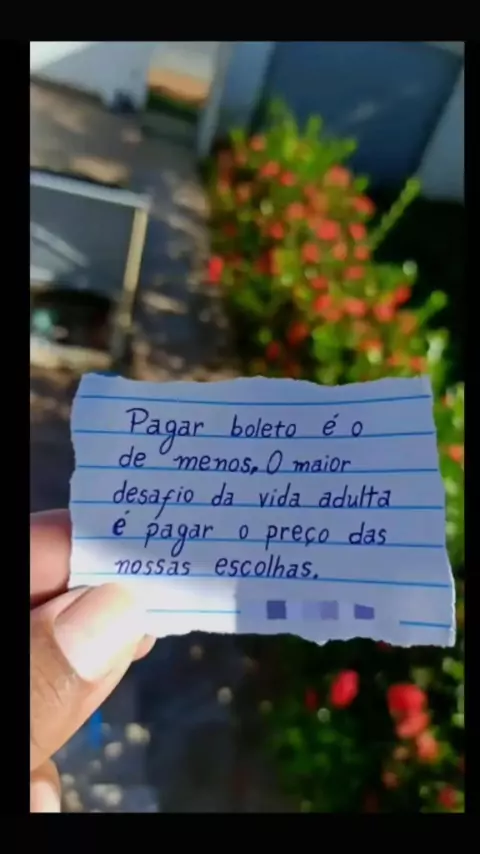 Pagar boleto é o
de menos. O maior
desafio da vida adulta
é pagar o preço das
nossas escolhas.